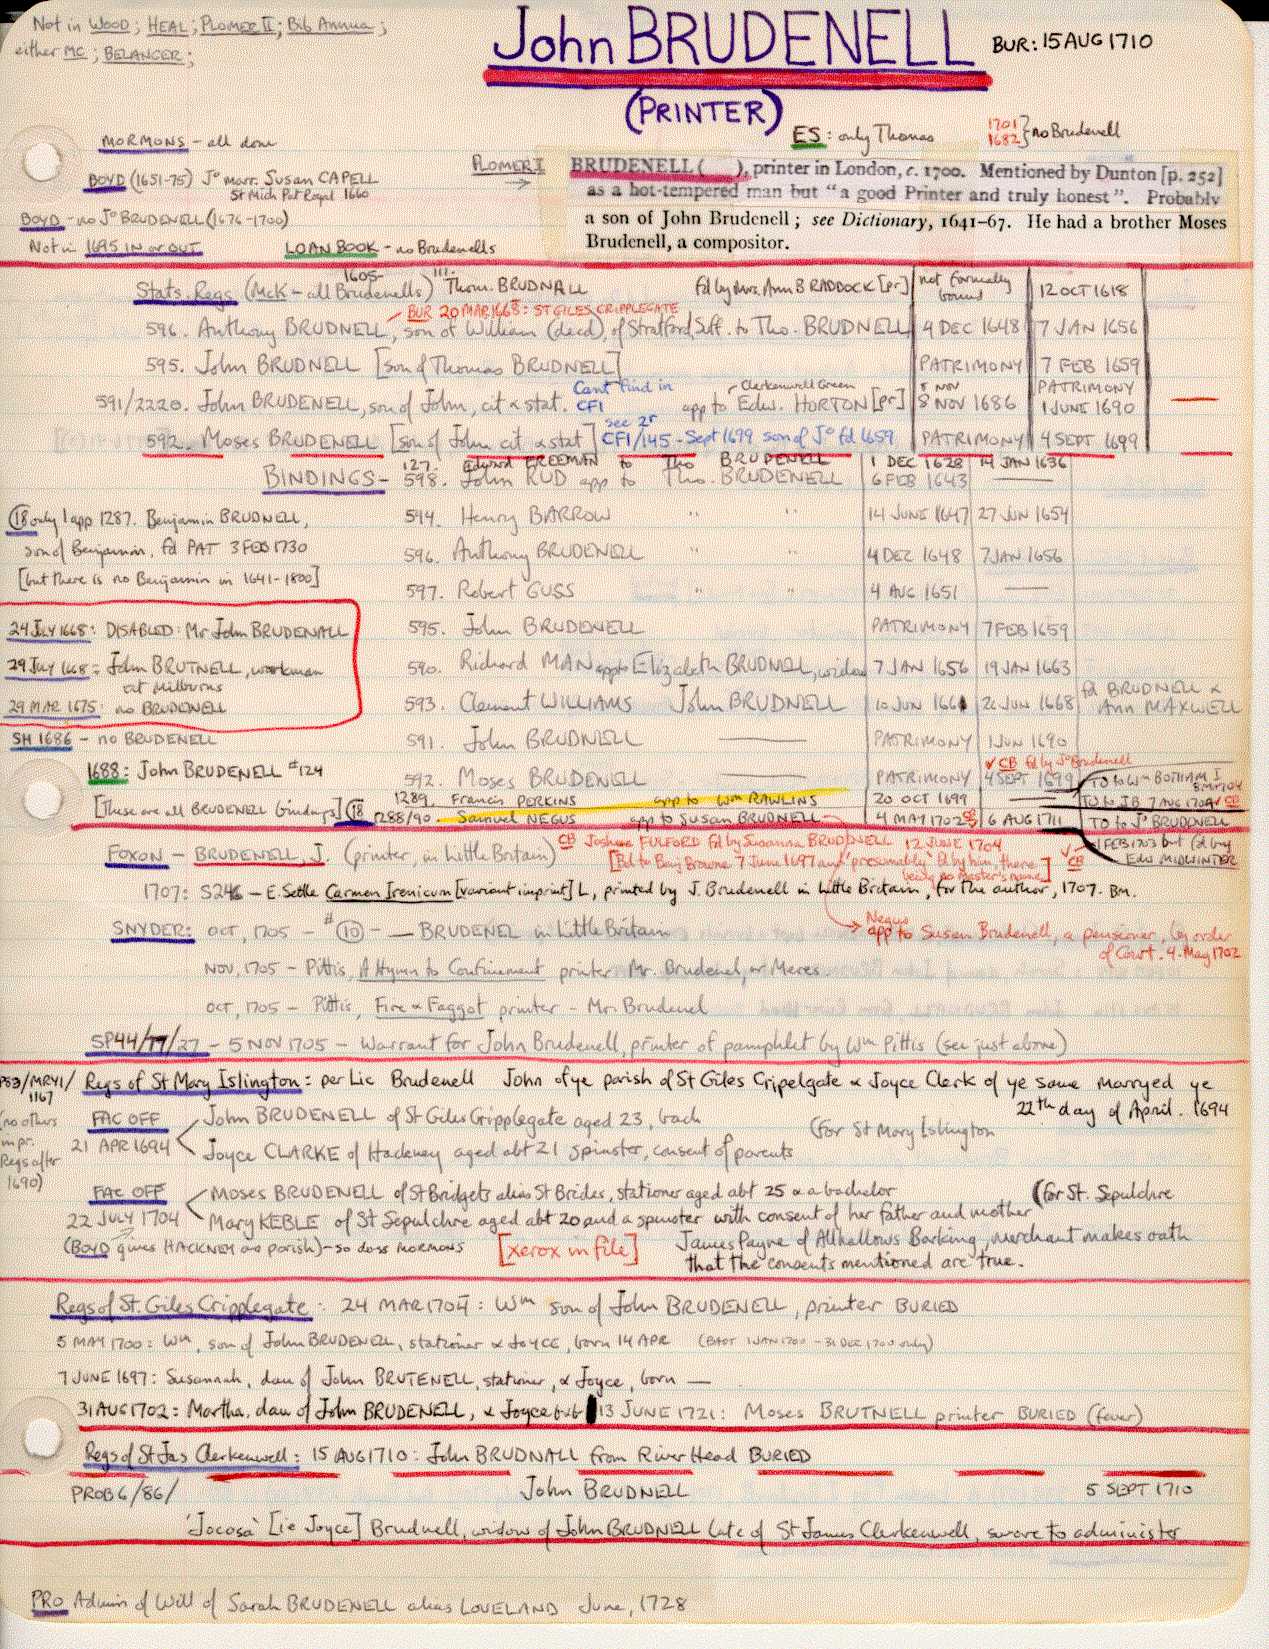 Not in WOOD; HEAL; PLOMER II; Bib Annua;
either MC; BELANGER;
John BRUDENELL BUR: 15 AUG 1710
(PRINTER)
ES: only Thomas 1701 1682 } no Brudenell
MORMONS - all done
BOYD (1651-75) Jº marr. Susan CAPELL
St Mich Pat Royal 1660
BOYD - no Jº BRUDENELL (1676-1700)
Not in 1695 IN or OUT LOAN BOOK - no Brudenells
PLOMER I →
BRUDENELL ( ), printer in London, c. 1700. Mentioned by Dunton [p. 252]
as a hot-tempered man but "a good Printer and truly honest". Probably
a son of John Brudenell; see Dictionary, 1641-67. He had a brother Moses
Brudenell, a compositor.
Stats. Regs (McK - all Brudenells) 1605- 111. Thom. BRUDNALL fd by Mrs. Ann BRADDOCK [pr] not formally bound 12 OCT 1618
BUR 20 MAR 1668: ST GILES CRIPPLEGATE
596. Anthony BRUDNELL, son of William (decd), of Stratford, Suff. to Tho. BRUDNELL 4 DEC 1648 7 JAN 1656
595. John BRUDNELL [son of Thomas BRUDNELL] PATRIMONY 7 FEB 1659
591/2220. John BRUDENELL, son of John, cit & stat. Cant find in CF1 app to Edw. HORTON [pr] Clerkenwell Green 5 NOV 8 NOV 1686 PATRIMONY 1 JUNE 1690
592. Moses BRUDENELL [son of John cit & stat] see 2r CF1/145 - Sept 1699 son of Jº fd 1659 PATRIMONY 4 SEPT 1699
BINDINGS - 127. Edward FREEMAN to Tho BRUDENELL 1 DEC 1628 14 JAN 1636
598. John RUD app to Tho. BRUDENELL 6 FEB 1643 ——
594. Henry BARROW " " 14 JUNE 1647 27 JUN 1654
596. Anthony BRUDENELL " " 4 DEC 1648 7 JAN 1656
597. Robert GUSS " " 4 AUG 1651 ——
595. John BRUDENELL PATRIMONY 7 FEB 1659
590. Richard MAN app to Elizabeth BRUDNELL, widow 7 JAN 1656 19 JAN 1663
593. Clement WILLIAMS John BRUDNELL 10 JUN 1661 26 JUN 1668 fd BRUDNELL & Ann MAXWELL
591. John BRUDENELL —— PATRIMONY 1 JUN 1690
✓ CB fd by Jº Brudenell
592. Moses BRUDENELL —— PATRIMONY 4 SEPT 1699
1289. Francis PERKINS app to Wm RAWLINS 20 OCT 1699 ——
1288/90. Samuel NEGUS app to SUSAN BRUDNELL 4 MAY 1702 CB 6 AUG 1711
TO to Wm BOTHAM I
TO to JB 7 AUG 1704 CB
TO to Jº BRUDENELL
1 FEB 1703 but fd by
Edw MIDWINTER
CB
(18 only 1 app 1287. Benjamin BRUDNELL,
son of Benjamin, fd PAT 3 FEB 1730
[but there is no Benjamin in 1641-1800]
24 July 1668: DISABLED: Mr John BRUDENALL
29 JULY 1668: John BRUTNELL, workman
at Milbourns
29 MAR 1675: no BRUDENELL
SH 1686 - no BRUDENELL
1688: John BRUDENELL #124
[These are all BRUDENELL bindings] (18
CB Joshua FULFORD fd by Susanna BRUDENELL 12 JUNE 1704
[Bd to Benj Browne 7 June 1697 and 'presumably' fd by him, there being no master's name]
FOXON - BRUDENELL, J (printer, in Little Britain)
1707: S246 - E. Settle Carmen Irenicum [variant imprint] L, printed by J. Brudenell in Little Britain, for the author, 1707. BM.
SNYDER: OCT, 1705 - # (10) - — BRUDENEL in Little Britain
Negus app to Susan Brudenell, a pensioner, by order
of Court. 4 May 1702
NOV, 1705 - Pittis, A Hymn to Confinement printer Mr. Brudenel, or Meres.
OCT, 1705 - Pittis, Fire & Faggot printer - Mr. Brudenel
SP44/77/27 - 5 NOV 1705 - Warrant for John Brudenell, printer of pamphlet by Wm Pittis (see just above)
P83/MRY1/1167
Regs of St Mary Islington: per Lic Brudenell John of ye parish of St Giles Cripelgate & Joyce Clerk of ye same marryed ye
22th day of April. 1694
(no others in pr. Regs after 1690)
FAC OFF 21 APR 1694 John BRUDENELL of St Giles Cripplegate aged 23, bach
Joyce CLARKE of Hackney aged abt 21 spinster, consent of parents (for St Mary Islington
FAC OFF 22 JULY 1704 Moses BRUDENELL of St Bridgets alias St Brides, stationer aged abt 25 & a bachelor (for St. Sepulchre
Mary KEBLE of St Sepulchre aged abt 20 and a spinster with consent of her father and mother
(BOYD gives HACKNEY as parish) - so does MORMONS [xerox in file] James Payne of Allhallows Barking, merchant makes oath
that the consents mentioned are true.
Regs of St. Giles Cripplegate: 24 MAR 1704: Wm son of John BRUDENELL, printer BURIED
5 MAY 1700: Wm, son of John BRUDENELL, stationer & JOYCE, born 14 APR (BAPT 1 JAN 1700 - 31 DEC 1700 only)
7 JUNE 1697: Susannah, dau of John BRUTENELL, stationer, & Joyce, born —
31 AUG 1702: Martha, dau of John BRUDENELL, & Joyce 13 JUNE 1721: Moses BRUTNELL printer BURIED (fever)
Regs of St Jas Clerkenwell: 15 AUG 1710: John BRUDNALL from River Head BURIED
PROB 6/86/ John BRUDNELL 5 SEPT 1710
'Jocosa' [ie Joyce] Brudnell, widow of John BRUDNELL late of St James Clerkenwell, swore to administer
PRO Admin of Will of Sarah BRUDENELL alias LOVELAND June, 1728